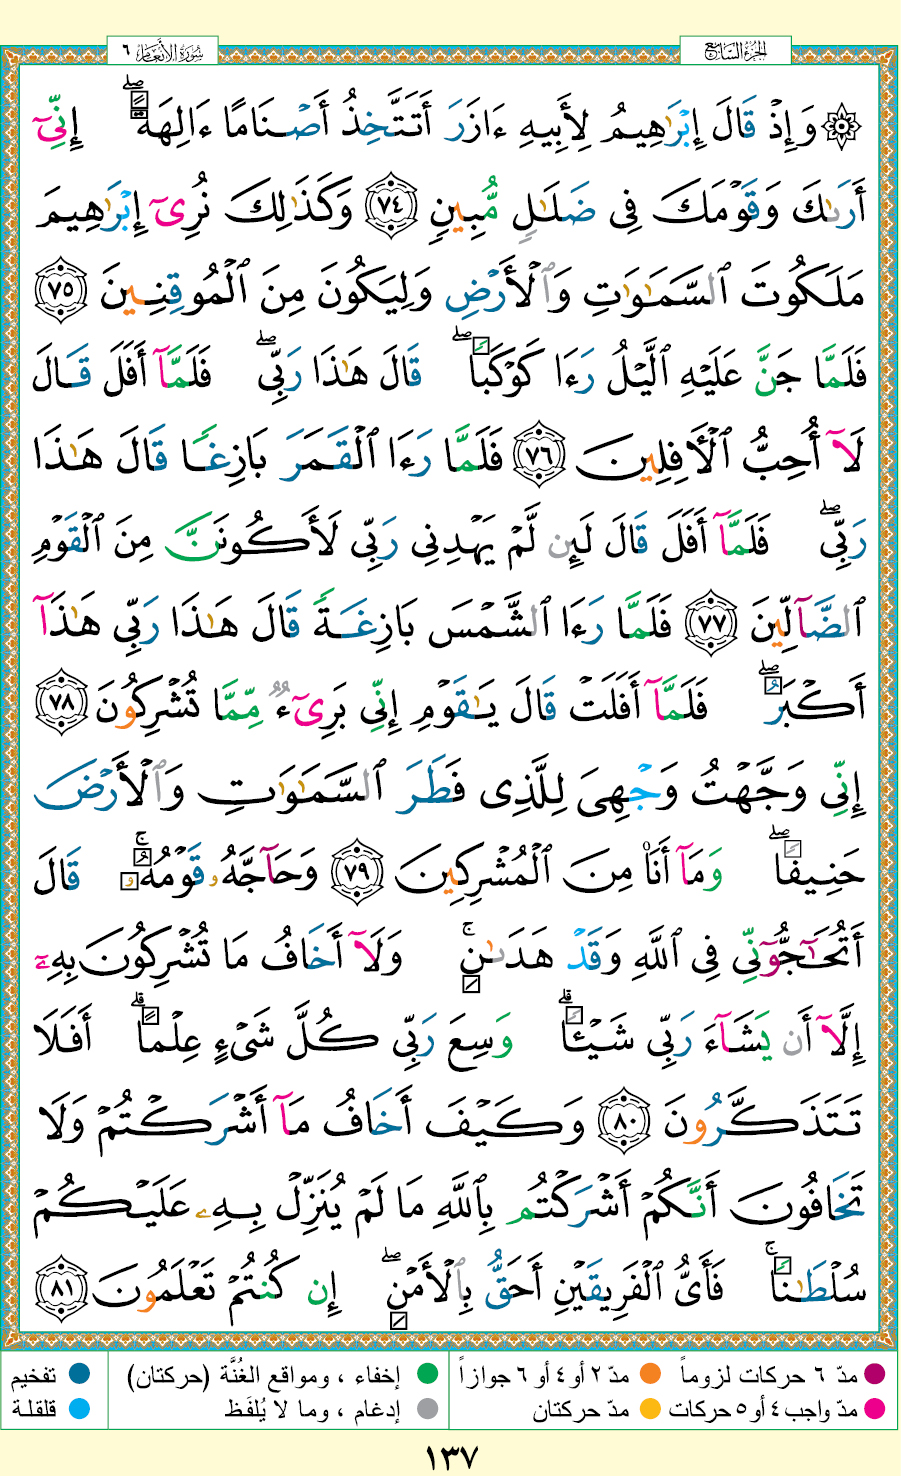 سُورَةُ الأَنْعَامِ ٦
الجُزْءُ السَّابِعُ
۞ وَإِذْ قَالَ إِبْرَٰهِيمُ لِأَبِيهِ ءَازَرَ أَتَتَّخِذُ أَصْنَامًا ءَالِهَةًۖ إِنِّىٓ
أَرَىٰكَ وَقَوْمَكَ فِى ضَلَـٰلٍ مُّبِينٍ ٧٤ وَكَذَٰلِكَ نُرِىٓ إِبْرَٰهِيمَ
مَلَكُوتَ ٱلسَّمَـٰوَٰتِ وَٱلْأَرْضِ وَلِيَكُونَ مِنَ ٱلْمُوقِنِينَ ٧٥
فَلَمَّا جَنَّ عَلَيْهِ ٱلَّيْلُ رَءَا كَوْكَبًاۖ قَالَ هَـٰذَا رَبِّىۖ فَلَمَّآ أَفَلَ قَالَ
لَآ أُحِبُّ ٱلْـَٔافِلِينَ ٧٦ فَلَمَّا رَءَا ٱلْقَمَرَ بَازِغًا قَالَ هَـٰذَا
رَبِّىۖ فَلَمَّآ أَفَلَ قَالَ لَئِن لَّمْ يَهْدِنِى رَبِّى لَأَكُونَنَّ مِنَ ٱلْقَوْمِ
ٱلضَّآلِّينَ ٧٧ فَلَمَّا رَءَا ٱلشَّمْسَ بَازِغَةً قَالَ هَـٰذَا رَبِّى هَـٰذَآ
أَكْبَرُۖ فَلَمَّآ أَفَلَتْ قَالَ يَـٰقَوْمِ إِنِّى بَرِىٓءٌ مِّمَّا تُشْرِكُونَ ٧٨
إِنِّى وَجَّهْتُ وَجْهِىَ لِلَّذِى فَطَرَ ٱلسَّمَـٰوَٰتِ وَٱلْأَرْضَ
حَنِيفًاۖ وَمَآ أَنَا۠ مِنَ ٱلْمُشْرِكِينَ ٧٩ وَحَآجَّهُۥ قَوْمُهُۥۚ قَالَ
أَتُحَـٰٓجُّوٓنِّى فِى ٱللَّهِ وَقَدْ هَدَىٰنِۚ وَلَآ أَخَافُ مَا تُشْرِكُونَ بِهِۦٓ
إِلَّآ أَن يَشَآءَ رَبِّى شَيْـًٔاۗ وَسِعَ رَبِّى كُلَّ شَىْءٍ عِلْمًاۗ أَفَلَا
تَتَذَكَّرُونَ ٨٠ وَكَيْفَ أَخَافُ مَآ أَشْرَكْتُمْ وَلَا
تَخَافُونَ أَنَّكُمْ أَشْرَكْتُم بِٱللَّهِ مَا لَمْ يُنَزِّلْ بِهِۦ عَلَيْكُمْ
سُلْطَـٰنًاۚ فَأَىُّ ٱلْفَرِيقَيْنِ أَحَقُّ بِٱلْأَمْنِۖ إِن كُنتُمْ تَعْلَمُونَ ٨١
مدّ ٦ حركات لزوماً مدّ ٢ أو ٤ أو ٦ جوازاً إخفاء ، ومواقع الغُنَّة (حركتان) تفخيم
مدّ واجب ٤ أو ٥ حركات مدّ حركتان إدغام ، وما لا يُلفَظ قلقلة
١٣٧